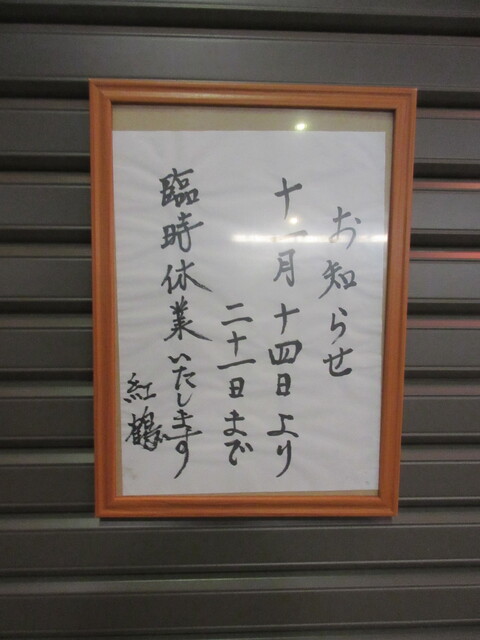 お知らせ
十一月十四日より
二十一日まで
臨時休業いたします
紅鶴